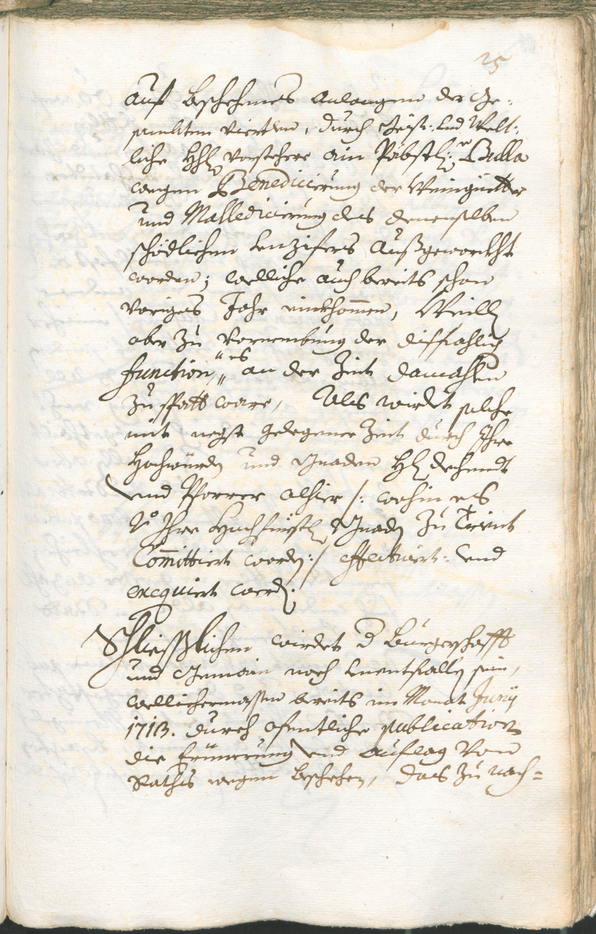 25
Auf beschehenes Anlangen der Ge¬
sambten Viertlen, durch Geist: und Welt:
liche Hh: Vorstehere ain Päbstl: Bulla
wegen Benedicierung der Weingüetter
und Malledicierung des denenselben
schödlichen Unzifers Außgewürkht
worden; welliche auch bereits schon
voriges Jahr einkhommen, Weill
aber zu Vornembung der dissfahlig
function, es an der Zeit damahlen
zu spatt ware, Als wirdet solche
mit negst gelegener Zeit durch Ihro
Hochwürden und Gnaden H: Dechandt
und Pfarrer alhier /: wohin es
Ihro Hochfürstl: Gnaden zu Trient
Committiert worden :/ effectuiert: und
exequiert werden.
Schliesslichen wirdet d Burgerschafft
und Gemain noch unentfallen sein,
wellichermassen bereits im Monat Juny
1713. durch ofentliche publication
die Erinnerung und Auflag Vom
Raths wegen beschehen, das zu nach=